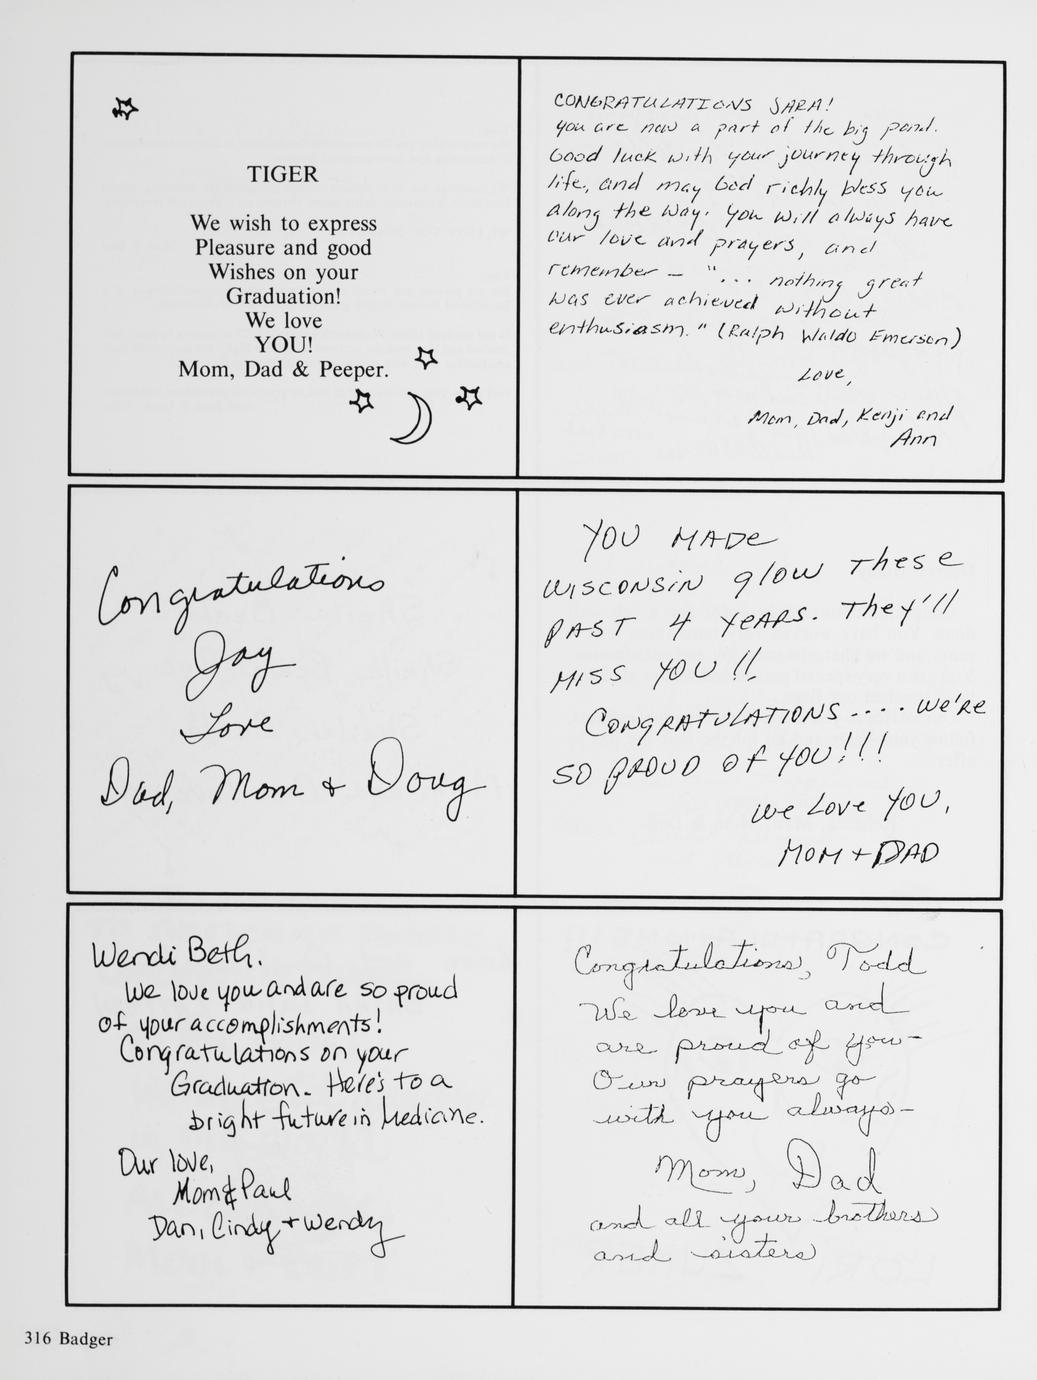 TIGER
We wish to express
Pleasure and good
Wishes on your
Graduation!
We love
YOU!
Mom, Dad & Peeper.
CONGRATULATIONS SARA!
You are now a part of the big pond.
Good luck with your journey through
life, and may God richly bless you
along the way. You will always have
our love and prayers, and
remember — "... nothing great
was ever achieved without
enthusiasm." (Ralph Waldo Emerson)
Love,
Mom, Dad, Kenji and
Ann
Congratulations
Jay
Love
Dad, Mom + Doug
YOU MADE
WISCONSIN glow THESE
PAST 4 YEARS. They'll
MISS YOU!!
CONGRATULATIONS .... we're
SO PROUD OF YOU!!!
We Love YOU,
MOM + DAD
Wendi Beth,
We love you and are so proud
of your accomplishments!
Congratulations on your
Graduation. Here's to a
bright future in Medicine.
Our love,
Mom & Paul
Dan, Cindy + Wendy
Congratulations, Todd
We love you and
are proud of you—
Our prayers go
with you always—
Mom, Dad
and all your brothers
and sisters
316 Badger